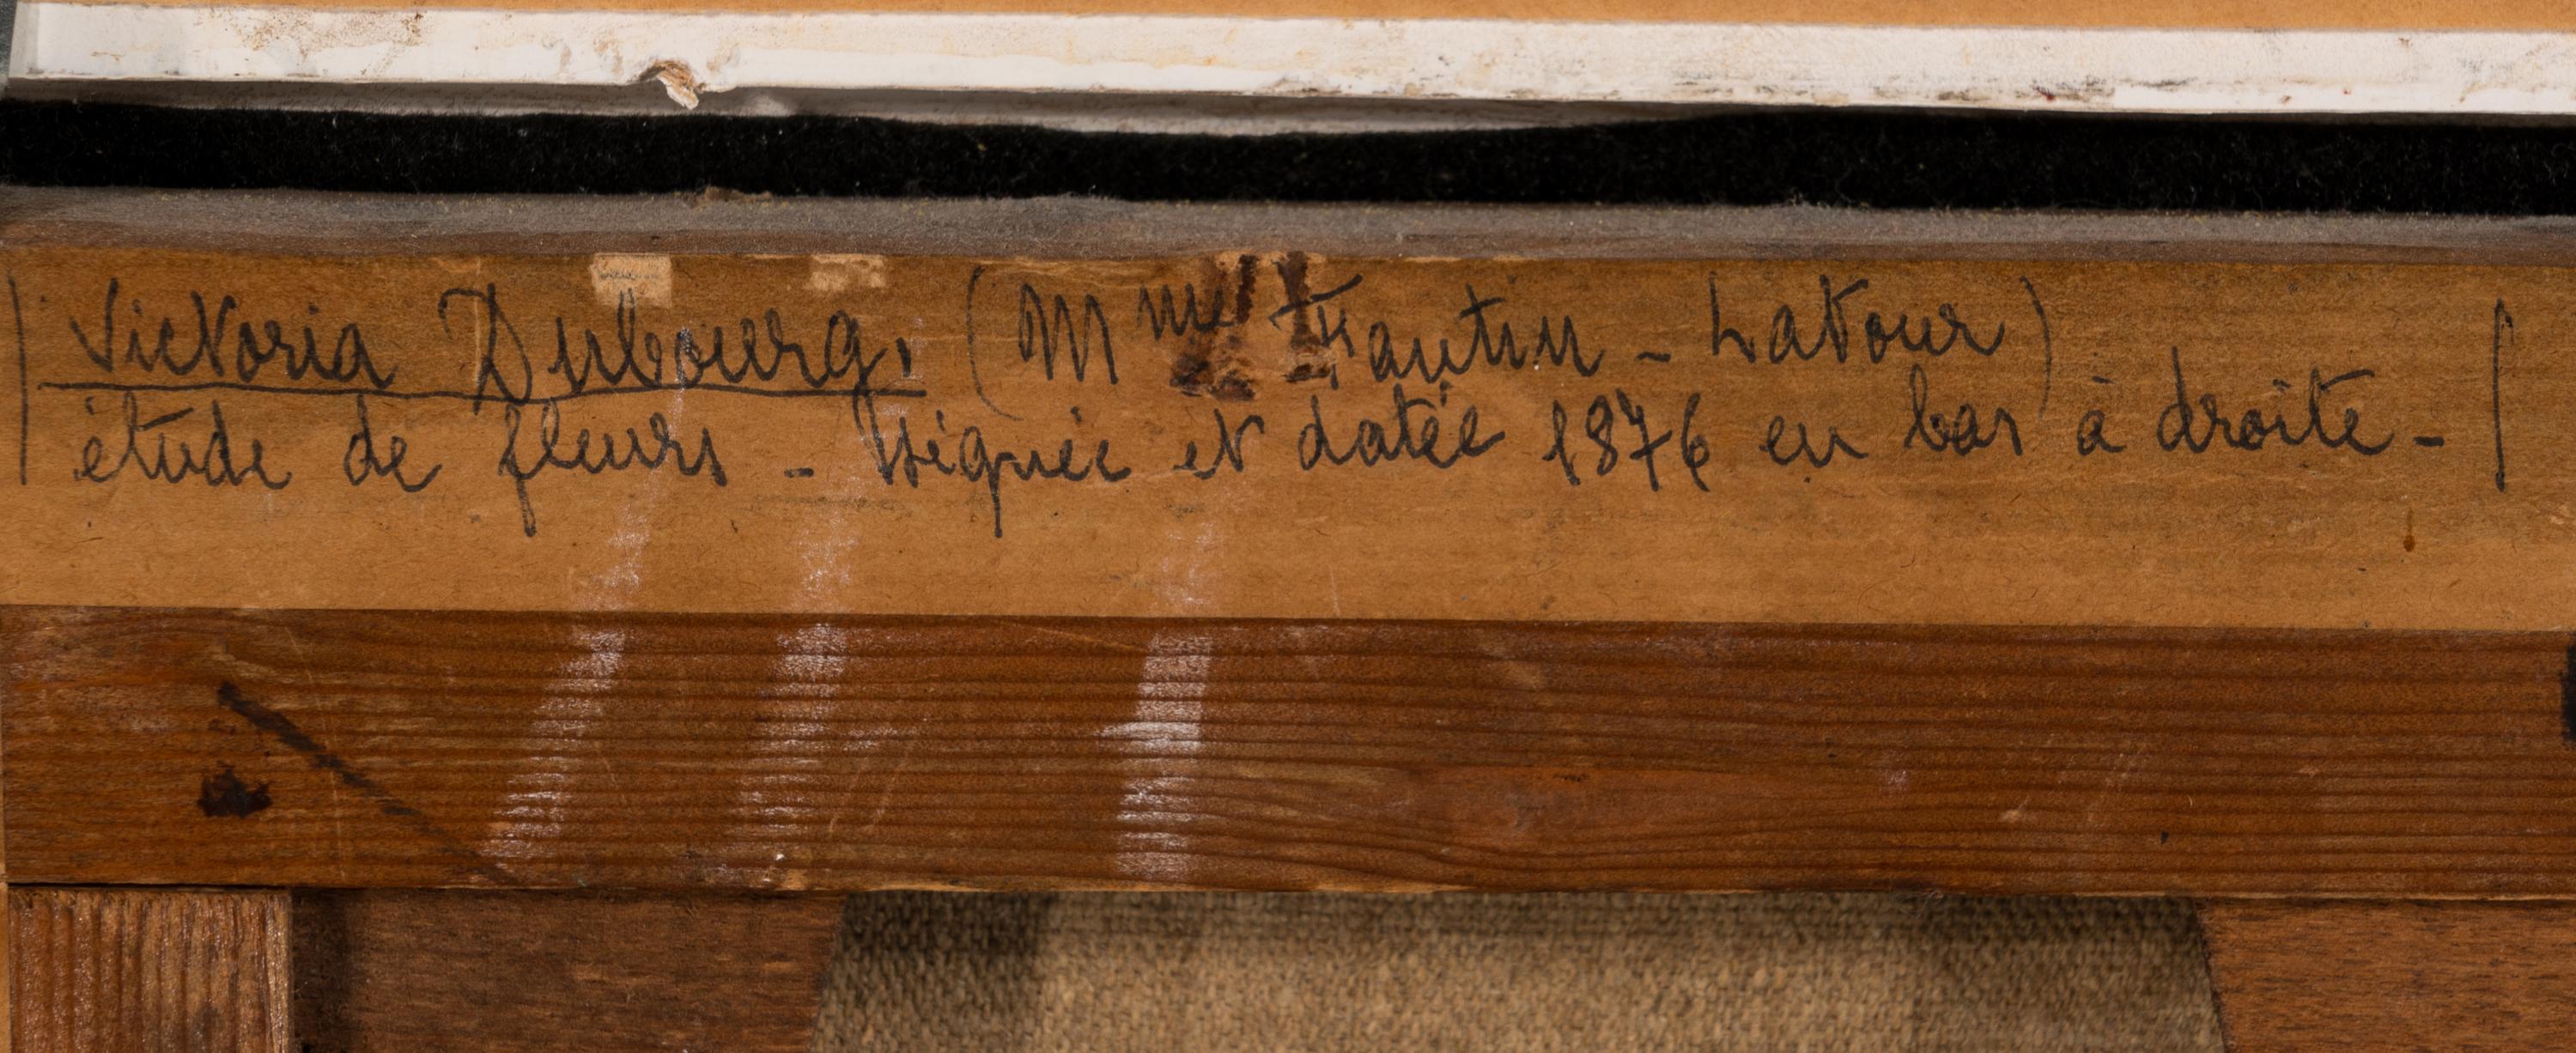 Victoria Dubourg. (Mme Fantin - Latour)
étude de fleurs - signée et datée 1876 en bas à droite -